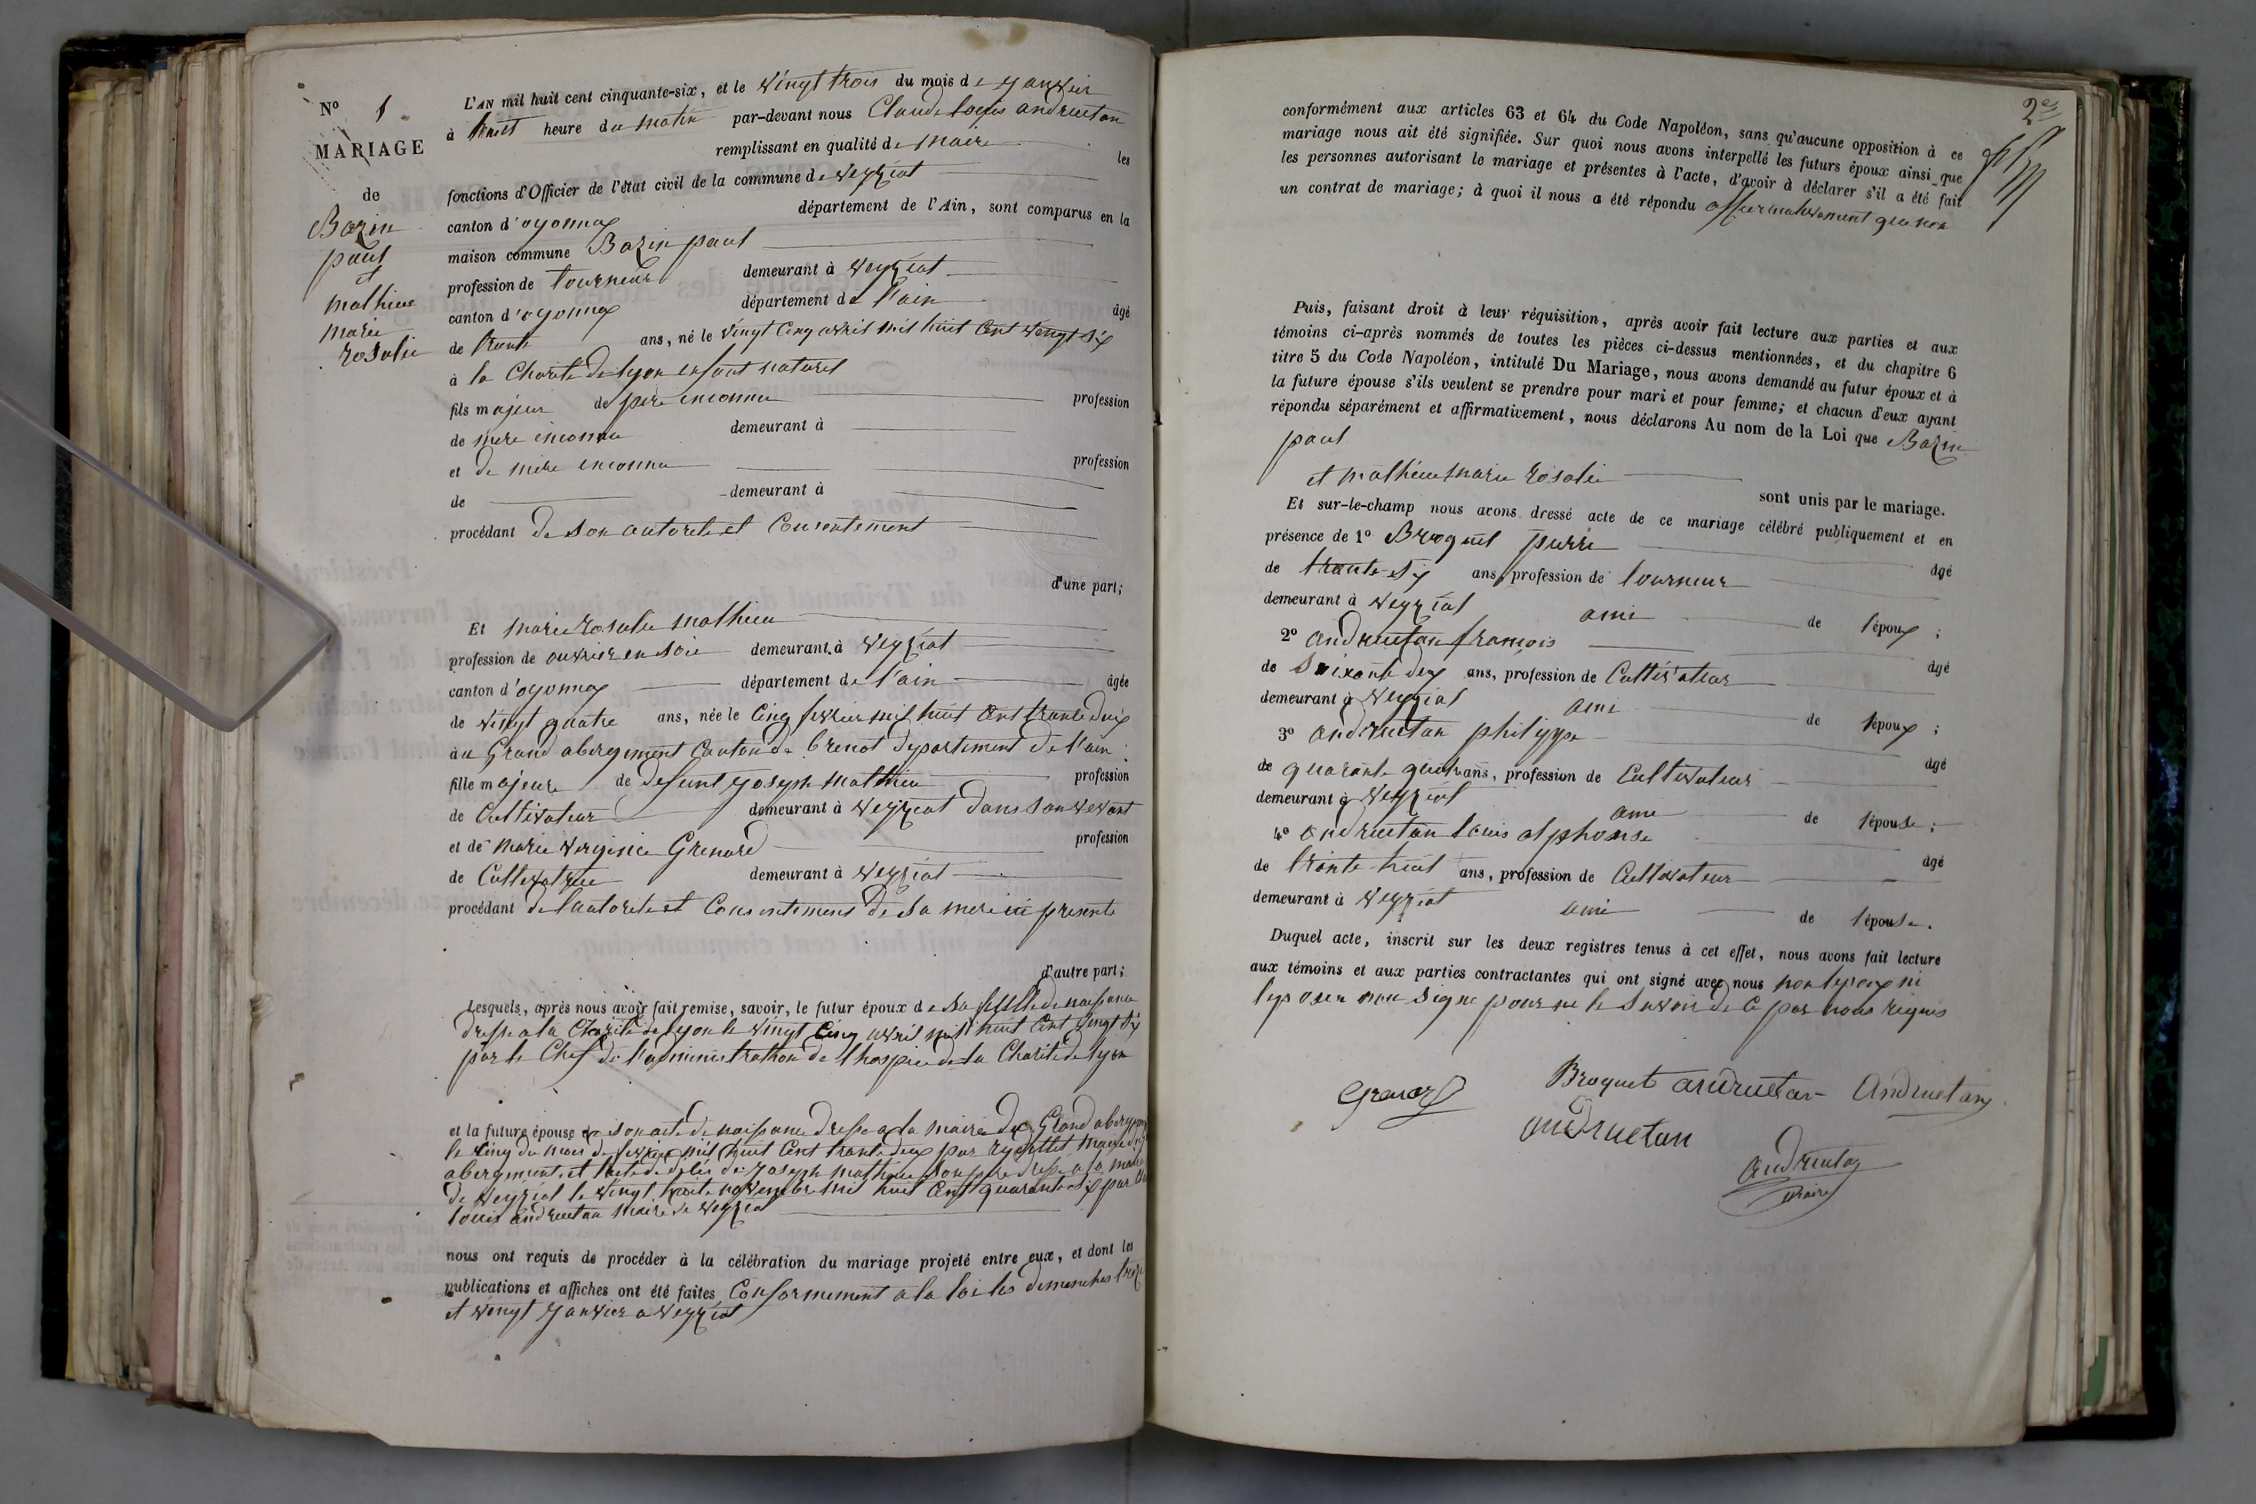 N° 1
MARIAGE
de
Bazin
paul
et
mathieu
marie
rosalie
L'AN mil huit cent cinquante-six, et le vingt trois du mois de janvier
à huit heure du matin par-devant nous Claude louis andruetan
remplissant en qualité de maire les
fonctions d'Officier de l'état civil de la commune de veyziat
canton d'oyonnax département de l'Ain, sont comparus en la
maison commune Bazin paul
profession de tourneur demeurant à veyziat
canton d'oyonnax département de l'ain âgé
de trente ans, né le vingt cinq avril mil huit cent vingt six
à la Charité de lyon enfant naturel
fils majeur de père inconnu profession
de mère inconnu demeurant à
et de mère inconnu profession
de demeurant à
procédant de son autorité et Consentement
d'une part;
Et marie rosalie mathieu
profession de ouvrier en soie demeurant à veyziat
canton d'oyonnax département de l'ain âgée
de vingt quatre ans, née le cinq fevrier mil huit cent trente deux
au Grand abergement Canton de brenod departement de l'ain
fille majeure de defunt joseph mathieu profession
de Cultivateur demeurant à veyziat dans son vivant
et de marie virginie Grenard profession
de Cultivatrice demeurant à veyziat
procédant de l'autorité et Consentement de sa mere ici presente
d'autre part;
Lesquels, après nous avoir fait remise, savoir, le futur époux de sa feuille de naissance
dressé a la Charité de lyon le vingt cinq avril mil huit cent vingt six
par le Chef de l'administration de l'hospice de la Charité de lyon
et la future épouse de son acte de naissance dressé a la mairie du Grand abergement
le cinq du mois de fevrier mil huit cent trente deux par maire du
abergement et l'acte de décès de joseph mathieu son père dressé a la mairie
de veyziat le vingt huit novembre mil huit cent quarante six par
louis andruetan maire de veyziat
nous ont requis de procéder à la célébration du mariage projeté entre eux, et dont les
publications et affiches ont été faites Conformement a la loi les dimanches treize
et vingt janvier a veyziat
2es
conformément aux articles 63 et 64 du Code Napoléon, sans qu'aucune opposition à ce
mariage nous ait été signifiée. Sur quoi nous avons interpellé les futurs époux ainsi que
les personnes autorisant le mariage et présentes à l'acte, d'avoir à déclarer s'il a été fait
un contrat de mariage; à quoi il nous a été répondu affirmativement que non
Puis, faisant droit à leur réquisition, après avoir fait lecture aux parties et aux
témoins ci-après nommés de toutes les pièces ci-dessus mentionnées, et du chapitre 6
titre 5 du Code Napoléon, intitulé Du Mariage, nous avons demandé au futur époux et à
la future épouse s'ils veulent se prendre pour mari et pour femme; et chacun d'eux ayant
répondu séparément et affirmativement, nous déclarons Au nom de la Loi que Bazin
paul
et mathieu marie rosalie
sont unis par le mariage.
Et sur-le-champ nous avons dressé acte de ce mariage célébré publiquement et en
présence de 1° Broquet pierre âgé
de trente-six ans, profession de tourneur
demeurant à veyziat ami de l'époux;
2° andruetan francois âgé
de soixante dix ans, profession de Cultivateur
demeurant à veyziat ami de l'époux;
3° andruetan philippe âgé
de quarante quatre ans, profession de Cultivateur
demeurant à veyziat ami de l'épouse;
4° andruetan louis alphonse âgé
de trente huit ans, profession de Cultivateur
demeurant à veyziat ami de l'épouse.
Duquel acte, inscrit sur les deux registres tenus à cet effet, nous avons fait lecture
aux témoins et aux parties contractantes qui ont signé avec nous non lepoux ni
lepouse non signé pour ne le savoir de ce par nous requis
Grenard
Broquet andruetan Andruetan
andruetan
andruetan
maire